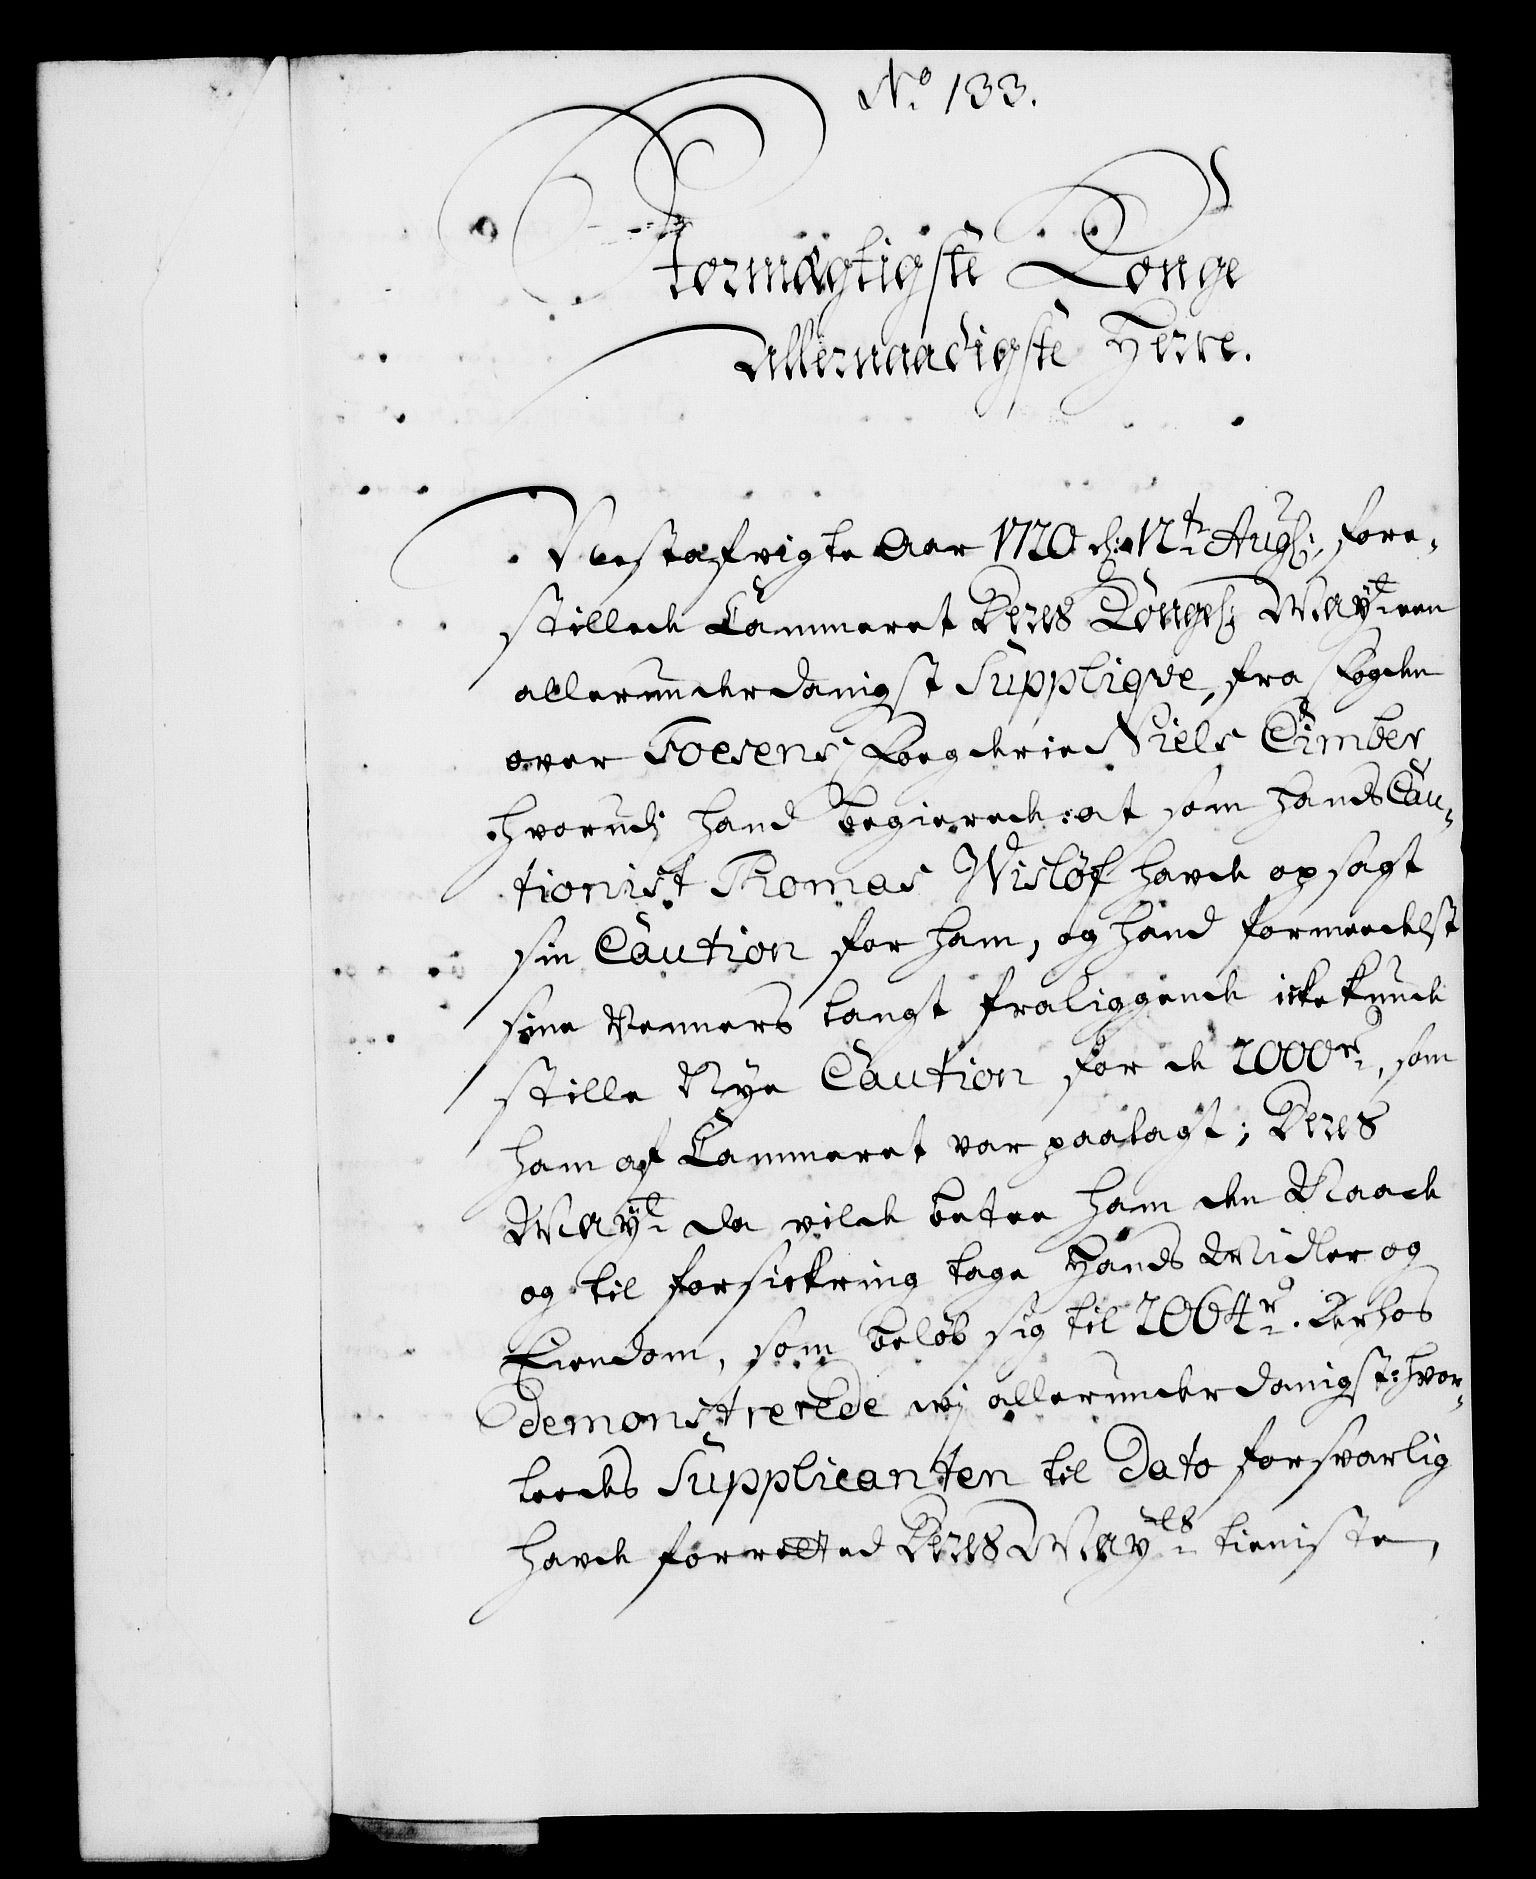 No 133.
Stormægtigste Konge
Allernaadigste Herre.
Nestafvigte Aar 1720 d: 12te Augs: fore-
stillede Cammeret Deres Kongel: Mayt: een
allerunderdanigst Supplique, fra Fogden
over Foesens Fogderie Niels Cimber
hvorudj hand begierede: at som hands Cau-
tionist Thomas Wisløf havde opsagt
sin Caution for ham, og hand formeedelst
sine Venners langt fraliggende icke kunde
stille Nye Caution for de 2000 rd, som
ham af Cammeret var paalagt; Deres
Mayt: da vilde betee ham den Naade
og til forsickring tage Hands Midler og
Eiendom, som beløb sig til 2064 rd. Derhos
demonstrerede wj allerunderdanigst: hvor-
leedes Supplicanten til Dato forsvarlig
havde forretted Deres Mayts: tieniste,